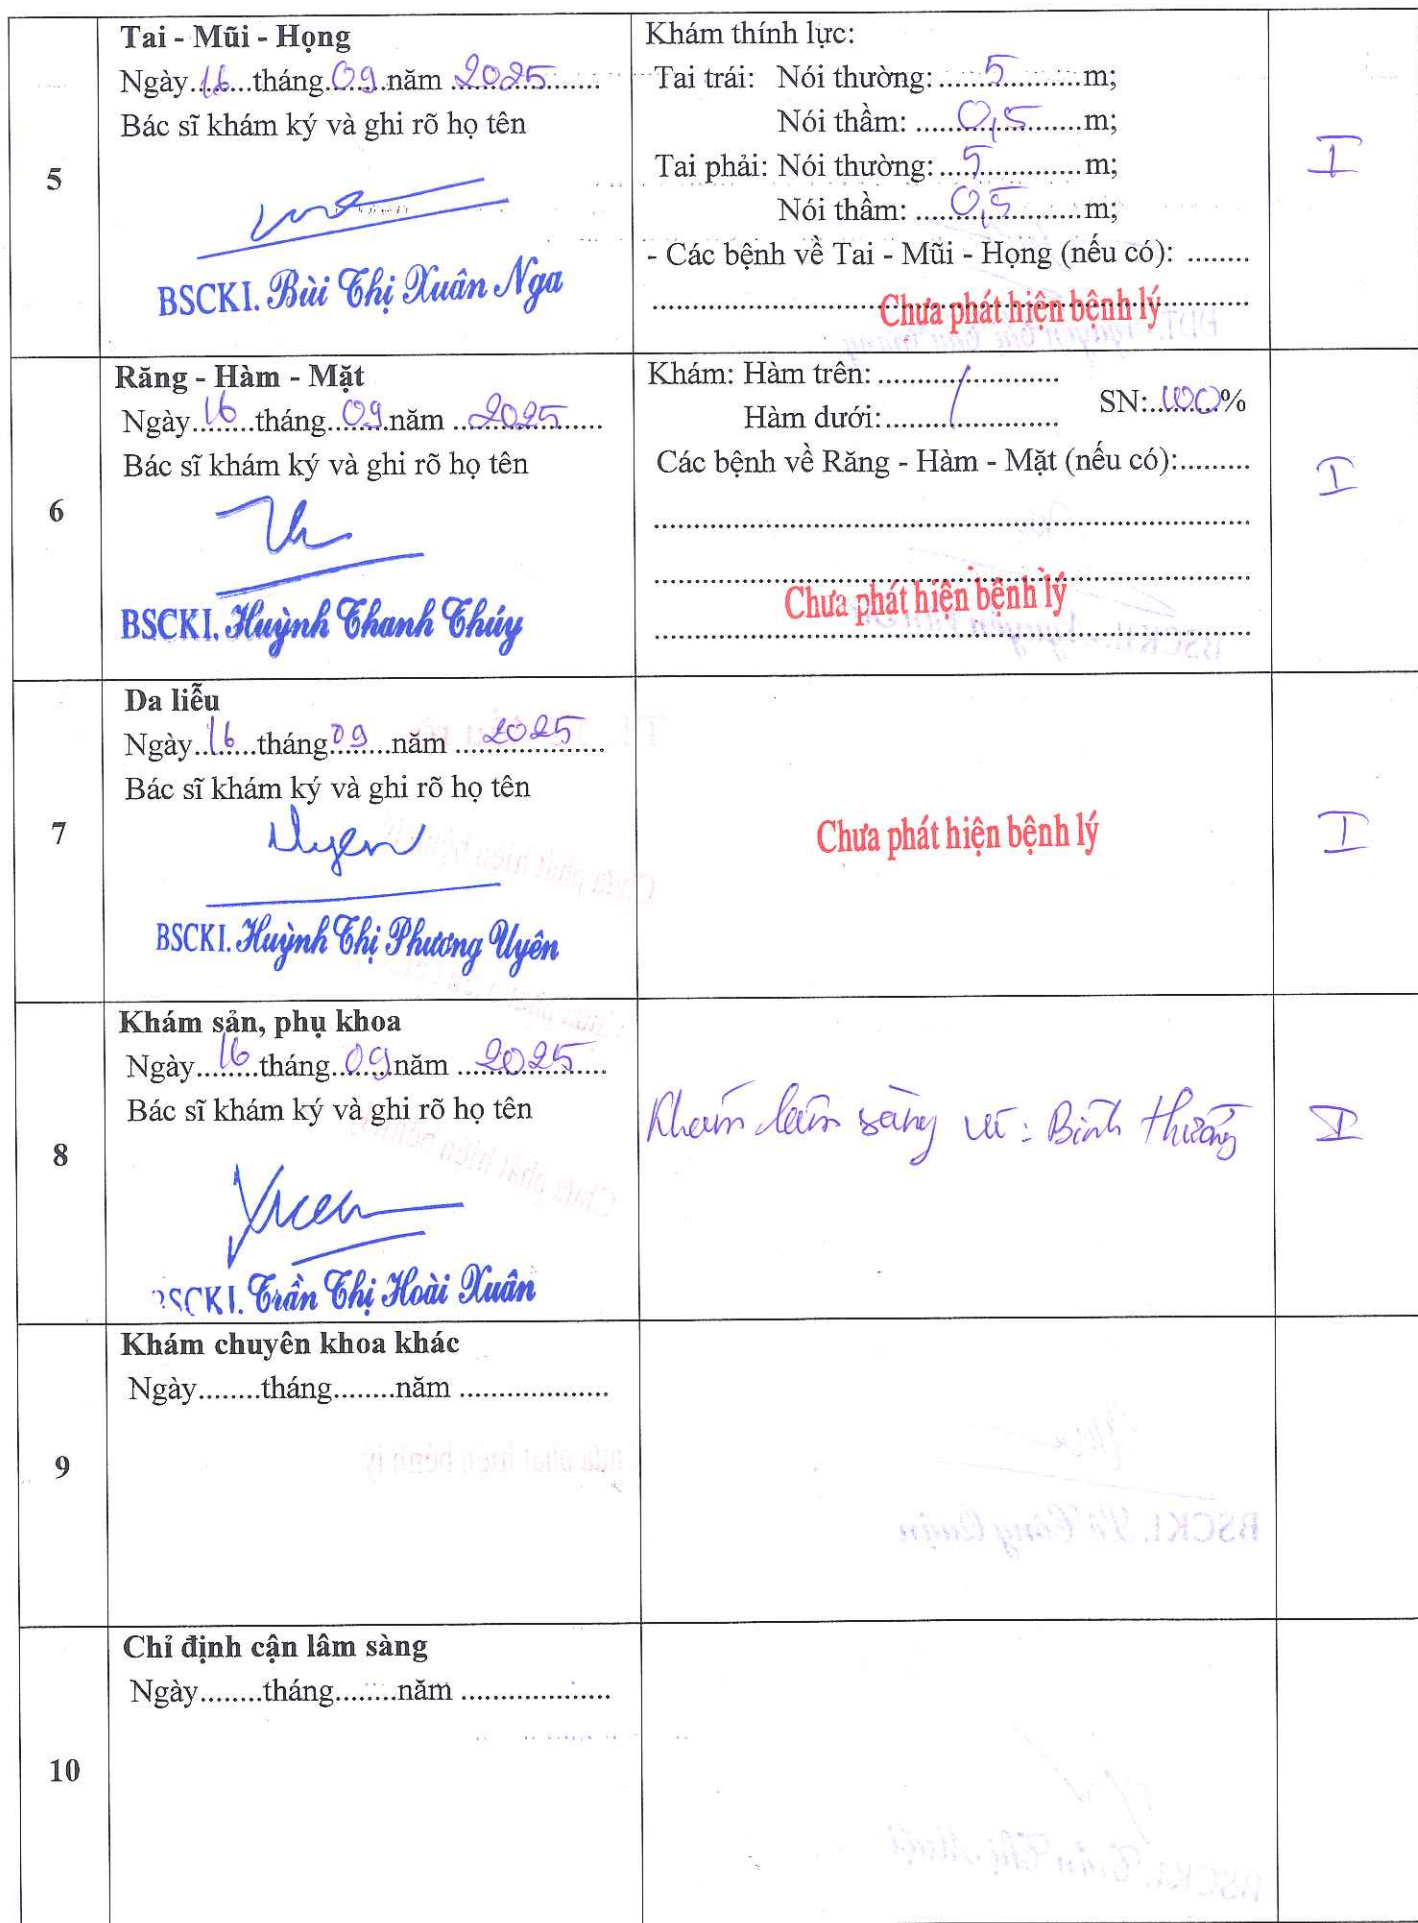 5
Tai - Mũi - Họng
Ngày..16..tháng..09..năm ..2025......
Bác sĩ khám ký và ghi rõ họ tên
BSCKI. Bùi Thị Xuân Nga
Khám thính lực:
Tai trái: Nói thường: ......5...........m;
Nói thầm: ......0,5...........m;
Tai phải: Nói thường: ....5............m;
Nói thầm: ......0,5...........m;
- Các bệnh về Tai - Mũi - Họng (nếu có): ........
Chưa phát hiện bệnh lý
I
6
Răng - Hàm - Mặt
Ngày..16....tháng..09..năm ..2025......
Bác sĩ khám ký và ghi rõ họ tên
BSCKI. Huỳnh Thanh Thúy
Khám: Hàm trên: ........./............
Hàm dưới: ........./............
SN:..100..%
Các bệnh về Răng - Hàm - Mặt (nếu có):.........
Chưa phát hiện bệnh lý
I
7
Da liễu
Ngày..16....tháng..09..năm ....2025....
Bác sĩ khám ký và ghi rõ họ tên
Uyen
BSCKI. Huỳnh Thị Phương Uyên
Chưa phát hiện bệnh lý
I
8
Khám sản, phụ khoa
Ngày...16...tháng..09..năm ...2025.....
Bác sĩ khám ký và ghi rõ họ tên
Xuân
BSCKI. Trần Thị Hoài Xuân
Khám lâm sàng vú: Bình thường
I
9
Khám chuyên khoa khác
Ngày........tháng........năm ...................
10
Chỉ định cận lâm sàng
Ngày........tháng........năm ...................